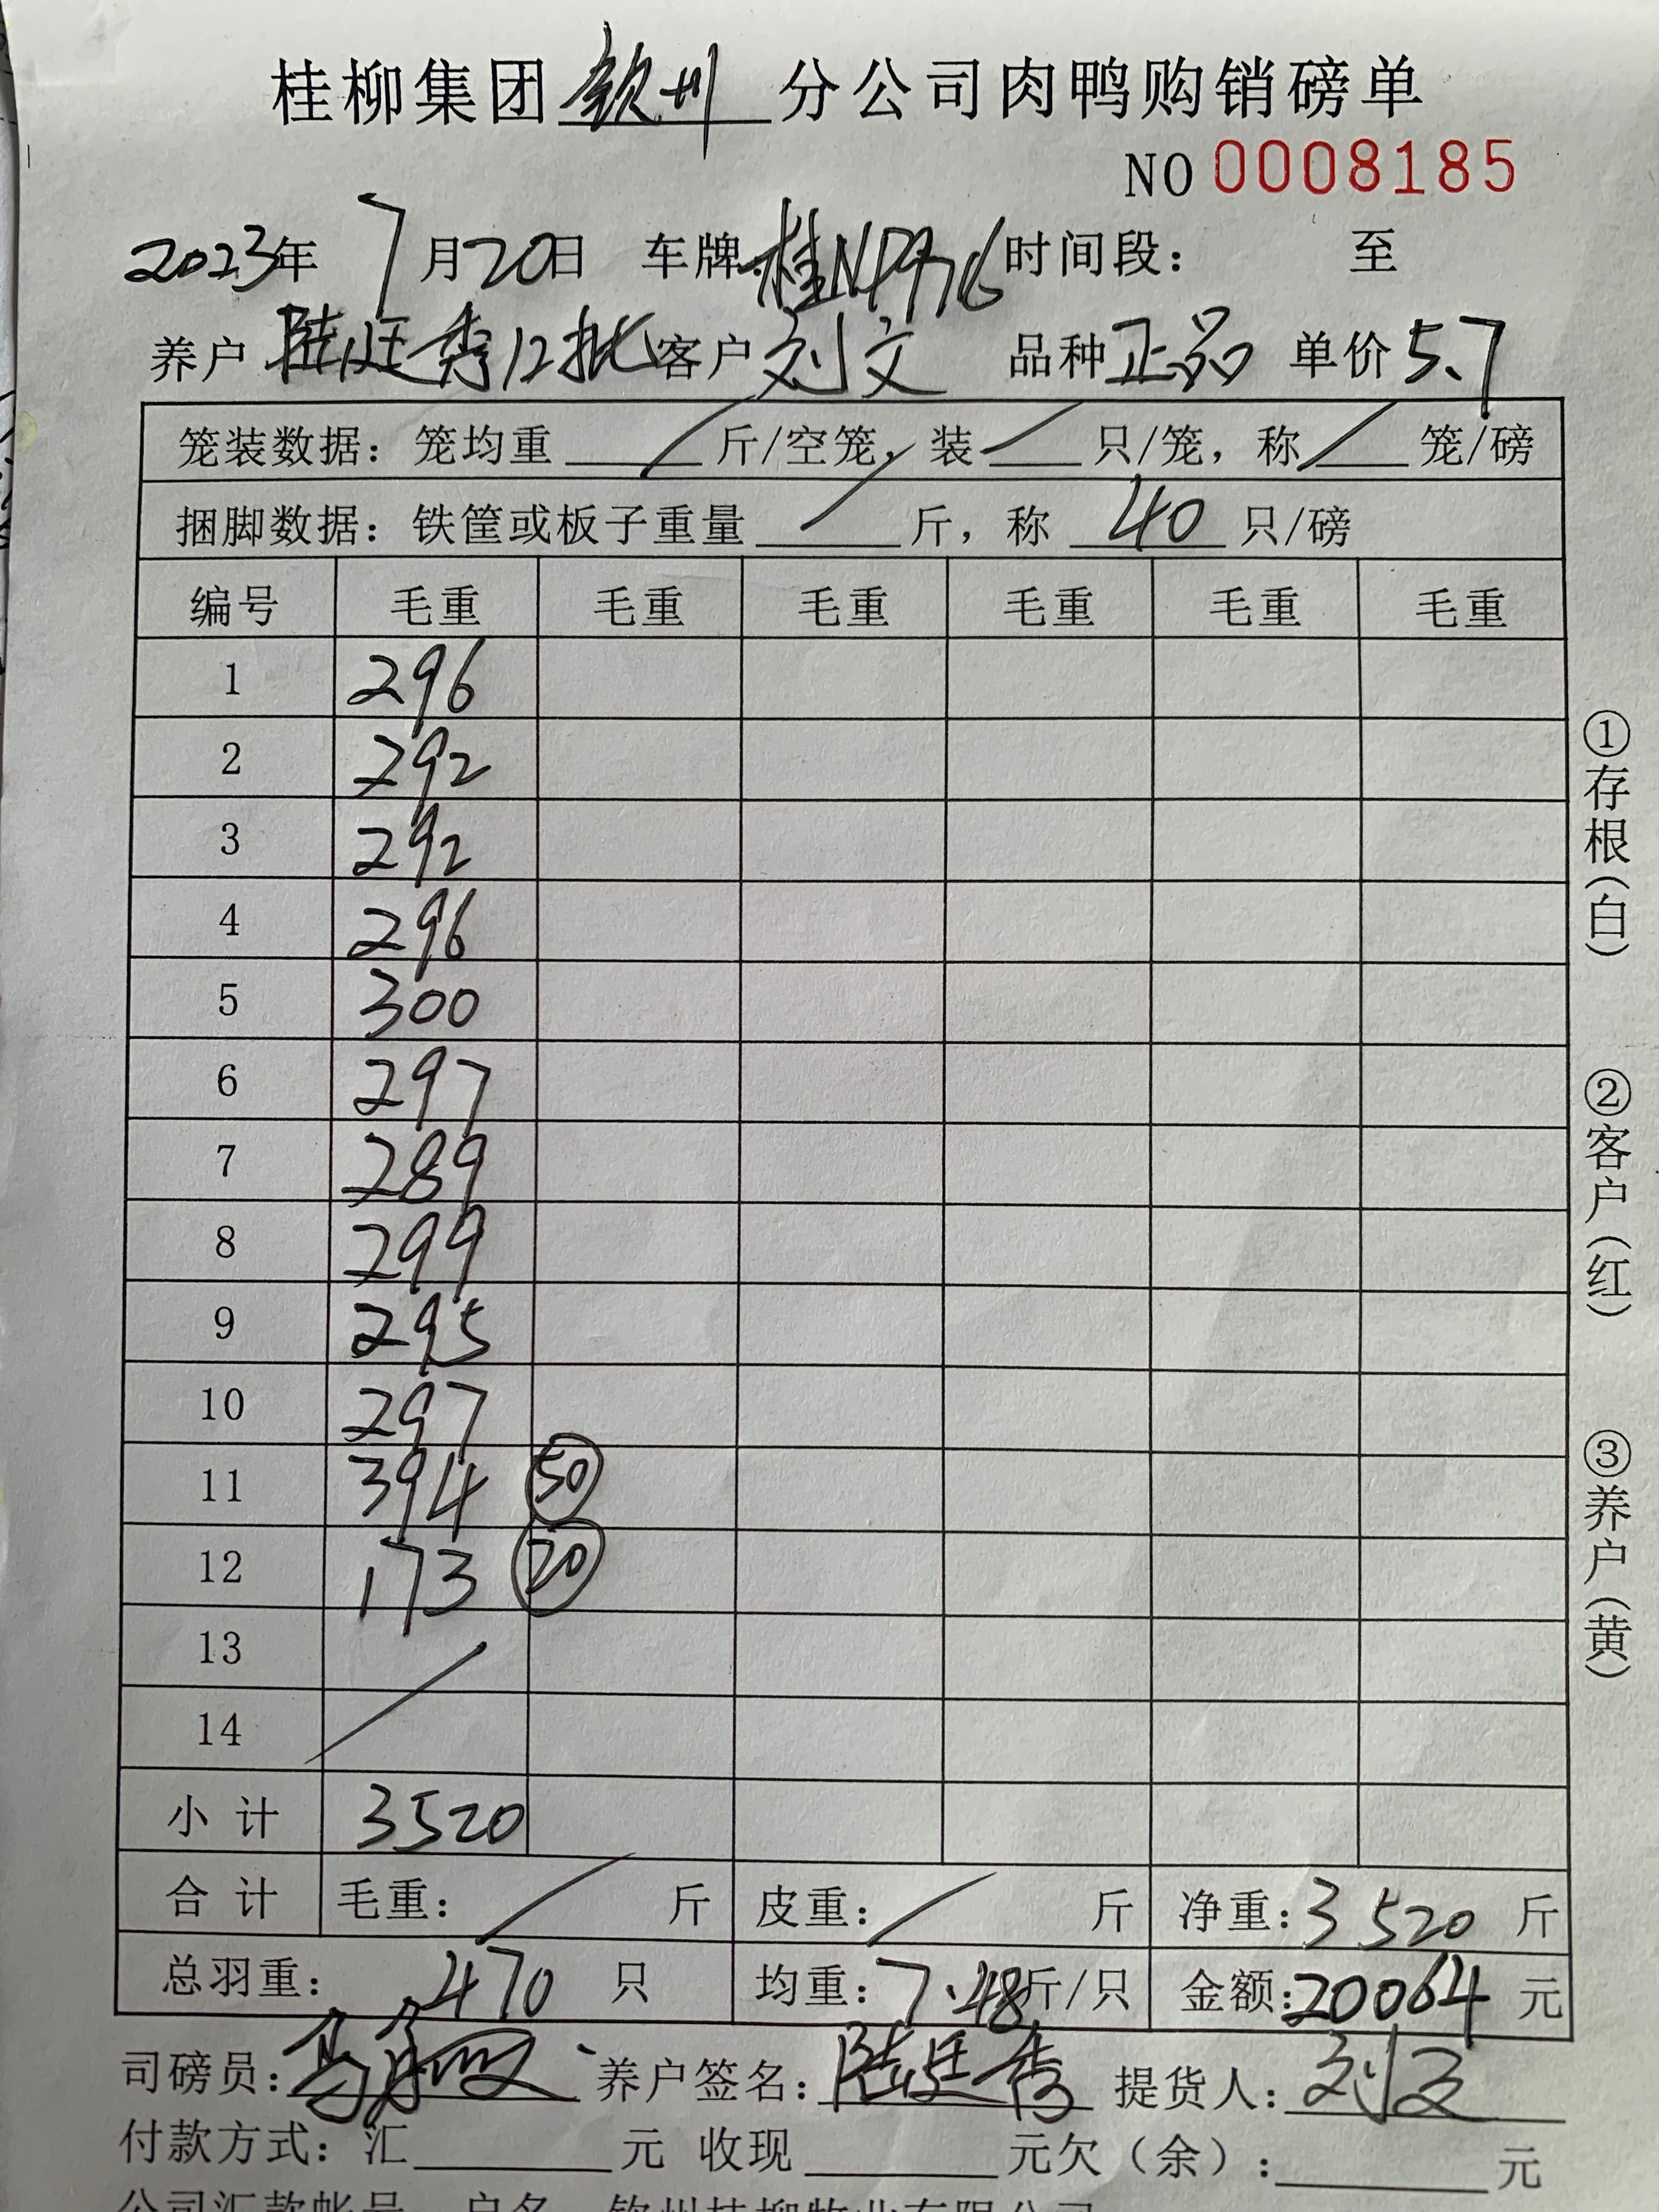 桂柳集团钦州分公司肉鸭购销磅单
NO 0008185
2023年 7月20日 车牌:桂NP9976 时间段: 至
养户 陆廷秀12批 客户 刘文 品种 正品 单价 5.7
笼装数据:笼均重 / 斤/空笼,装 / 只/笼,称 / 笼/磅
捆脚数据:铁筐或板子重量 / 斤,称 40 只/磅
编号 毛重 毛重 毛重 毛重 毛重 毛重
1 296
2 292
3 292
4 296
5 300
6 297
7 289
8 299
9 295
10 297
11 394 50
12 173 20
13
14
小计 3520
合计 毛重: / 斤 皮重: / 斤 净重:3520 斤
总羽重: 470 只 均重:7.48斤/只 金额:20064 元
司磅员: 养户签名:陆廷秀 提货人:刘文
付款方式:汇 元 收现 元欠(余): 元
公司汇款帐号 户名 钦州桂柳牧业有限公司
①存根(白)
②客户(红)
③养户(黄)